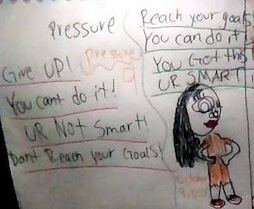 Pressure
Pressure
Give UP!
You cant do it!
UR Not Smart!
Dont Reach your Goals!
Reach your goals
You can do it!
You Got this
UR SMART!
October